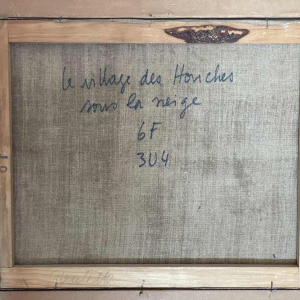 le village des Houches
sous la neige
6F
3U4